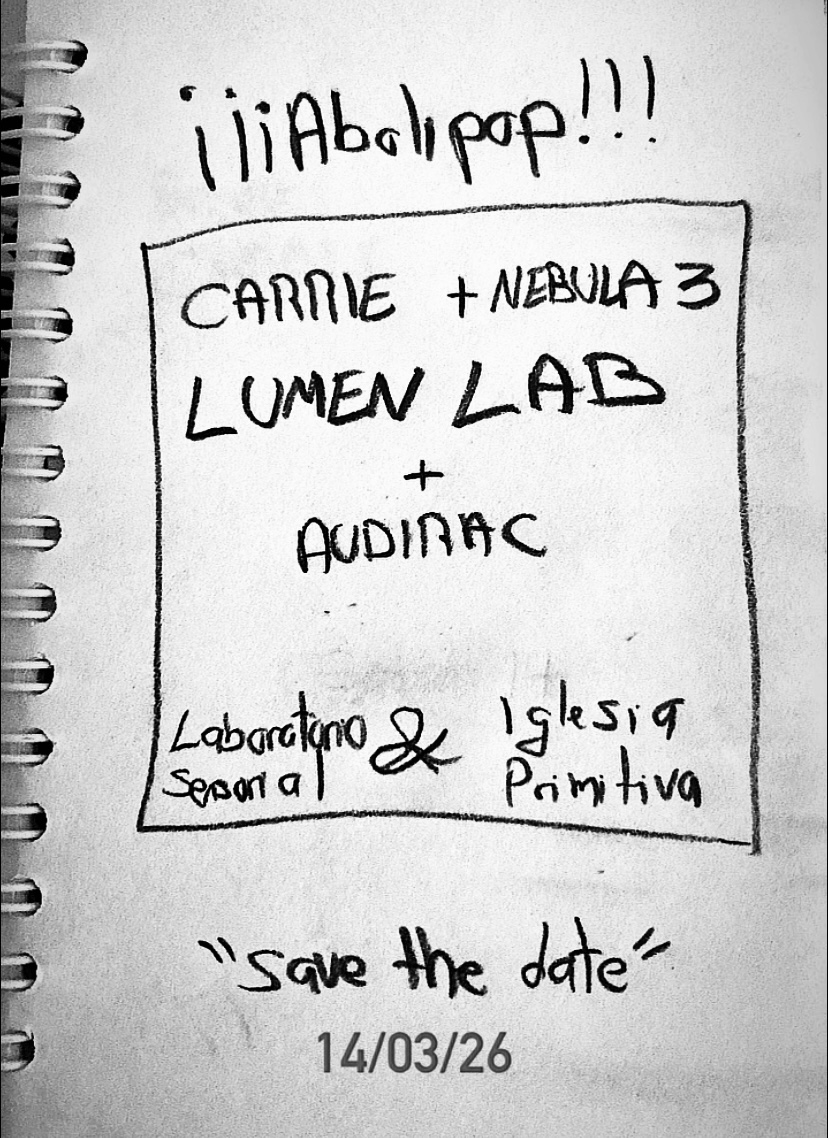 ¡¡¡Abolipop!!!
CARRIE + NEBULA 3
LUMEN LAB
+
AUDIRAC
Laboratorio & Iglesia
Sensorial Primitiva
"save the date"
14/03/26